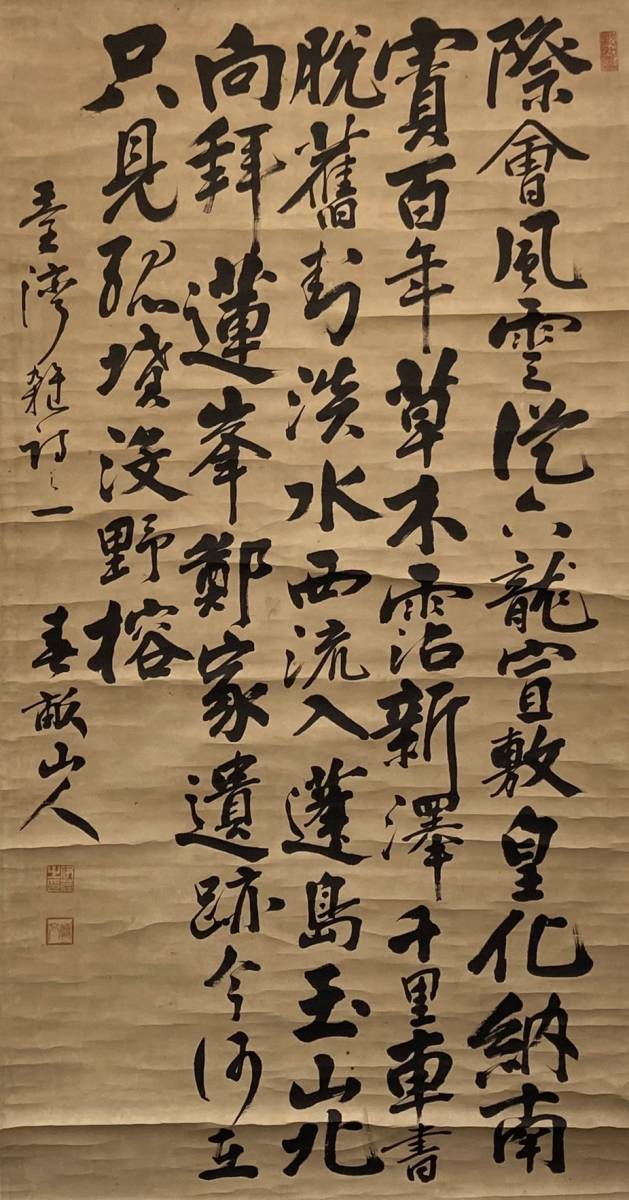 際會風雲從六龍宣敷皇化納南
賨百年草木霑新澤千里車書
脫舊封淡水西流入蓬島玉山北
向拜蓮峯鄭家遺跡今何在
只見孤墳沒野榕
臺灣雜詩之一 春畝山人